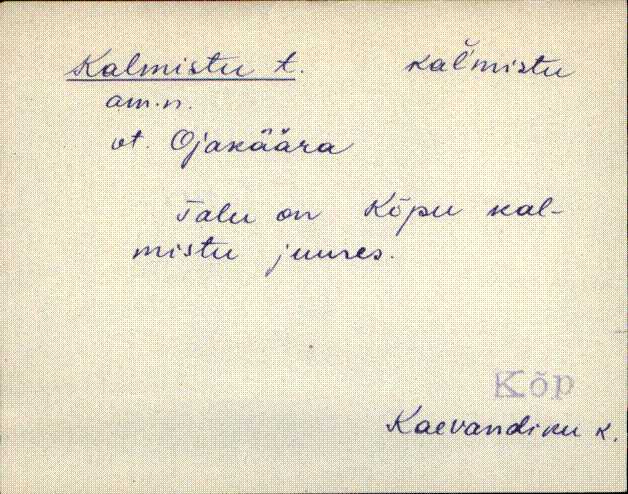 Kalmistu t. kal̆mistu
am.n.
vt. Ojakäära
Talu on Kõpu kal-
mistu juures.
Kõp
Kaevandiku k.